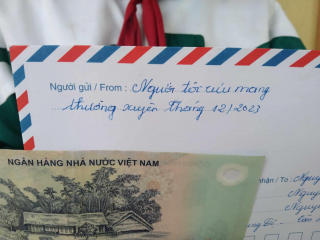 Người gửi / From : Người tôi cưu mang
thường xuyên tháng 12/2023
NGÂN HÀNG NHÀ NƯỚC VIỆT NAM
nhận / To : Nguy
Nguy
Nguy